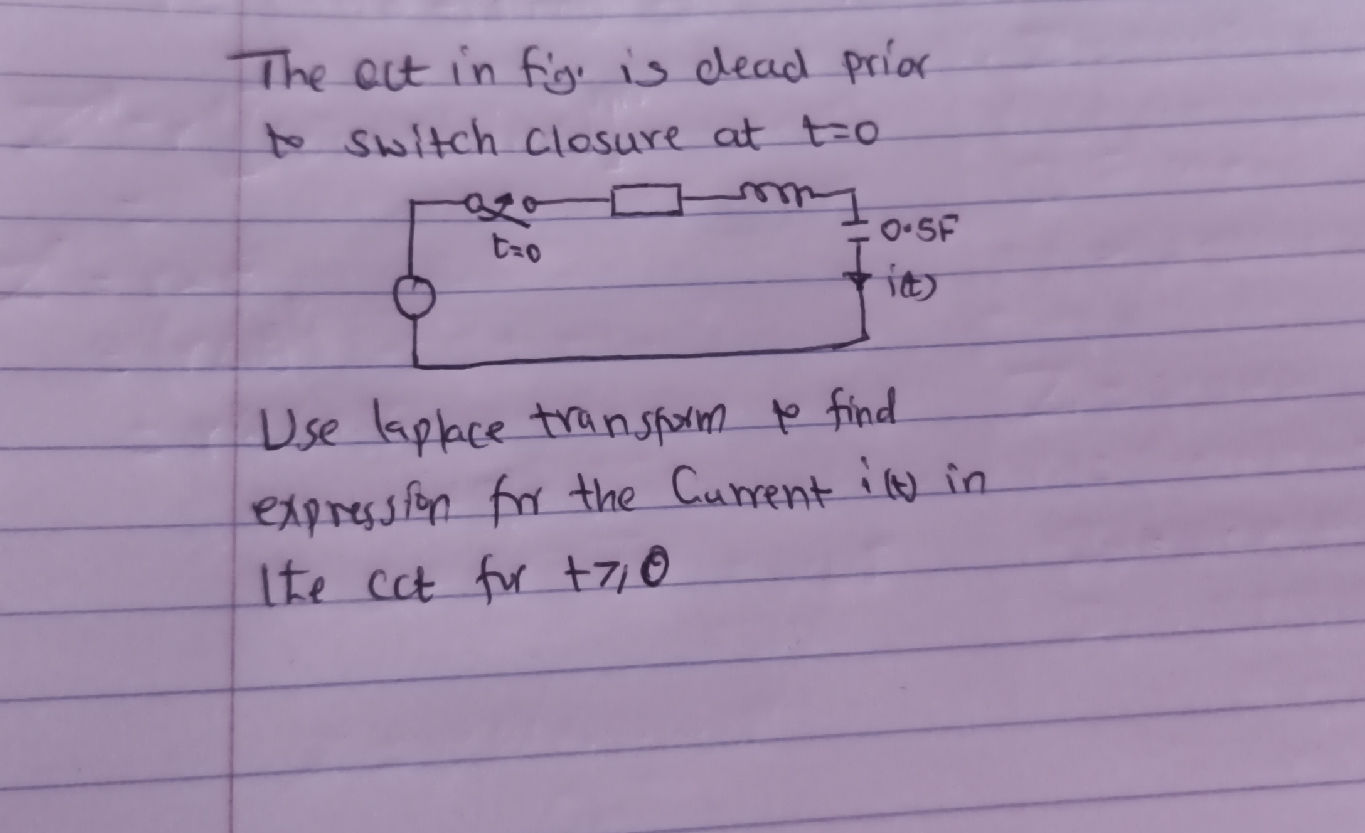 The cct in fig. is dead prior
to switch closure at t=0
t=0
0.5F
i(t)
Use laplace transform to find
expression for the Current i(t) in
the cct for t≥0